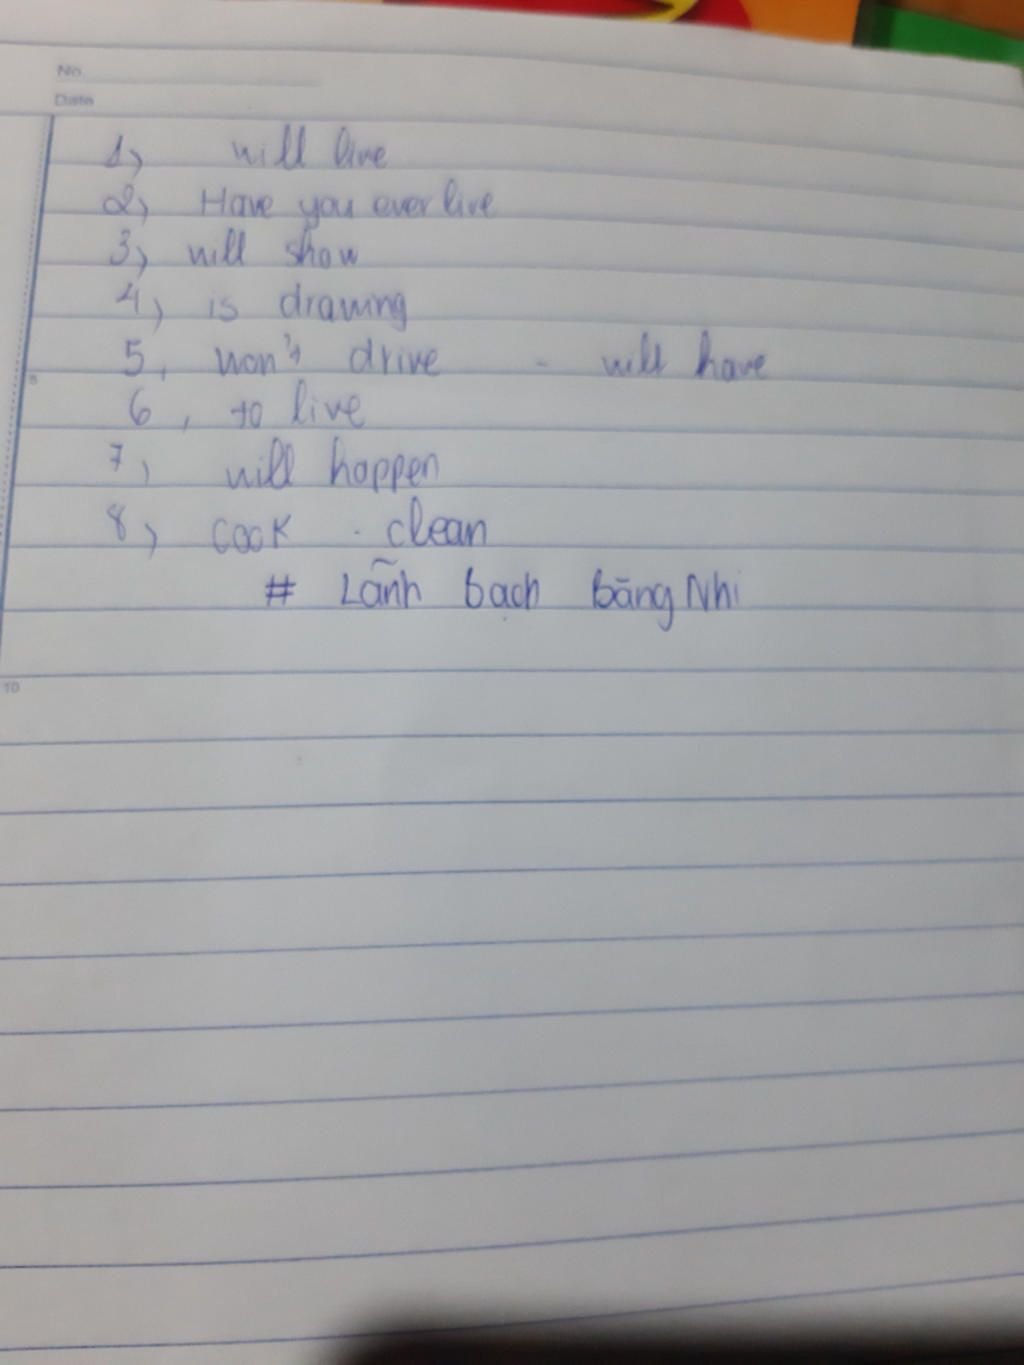 No.
Date
1, will live
2, Have you ever live
3, will show
4, is drawing
5, won't drive - will have
6, to live
7, will happen
8, cook - clean
# Lãnh bạch băng Nhi
5
10